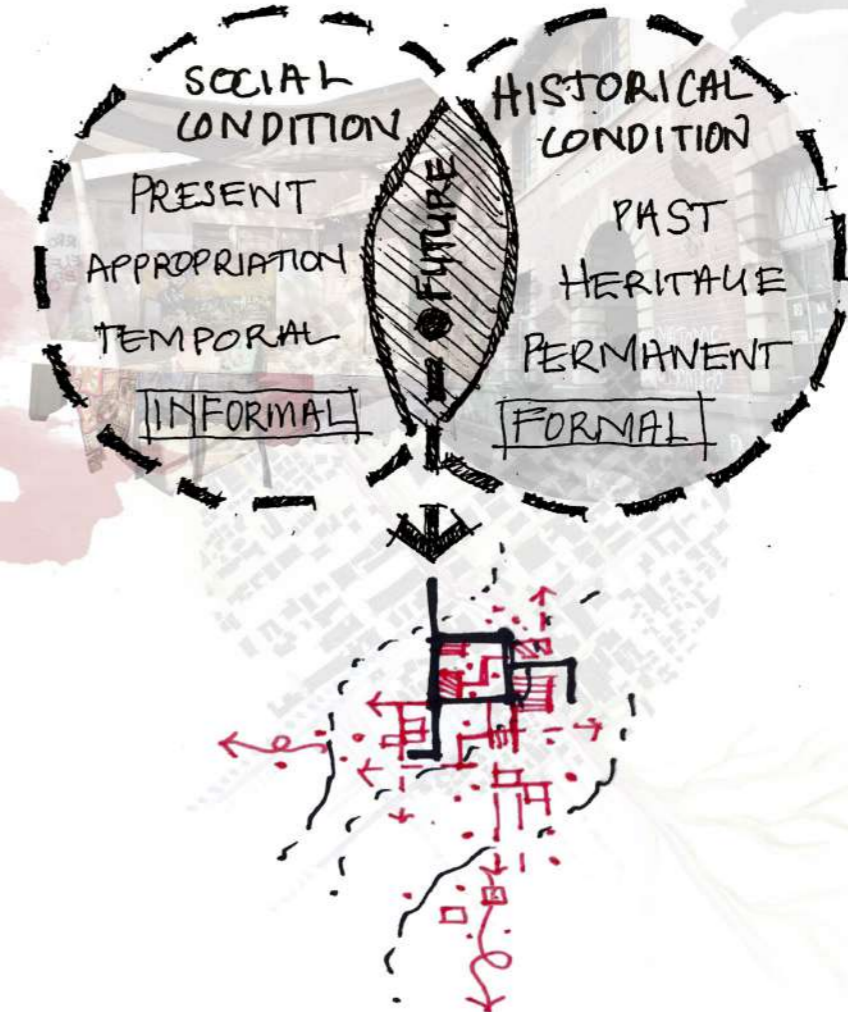 SOCIAL
CONDITION
PRESENT
APPROPRIATION
TEMPORAL
INFORMAL
FUTURE
HISTORICAL
CONDITION
PAST
HERITAGE
PERMANENT
FORMAL